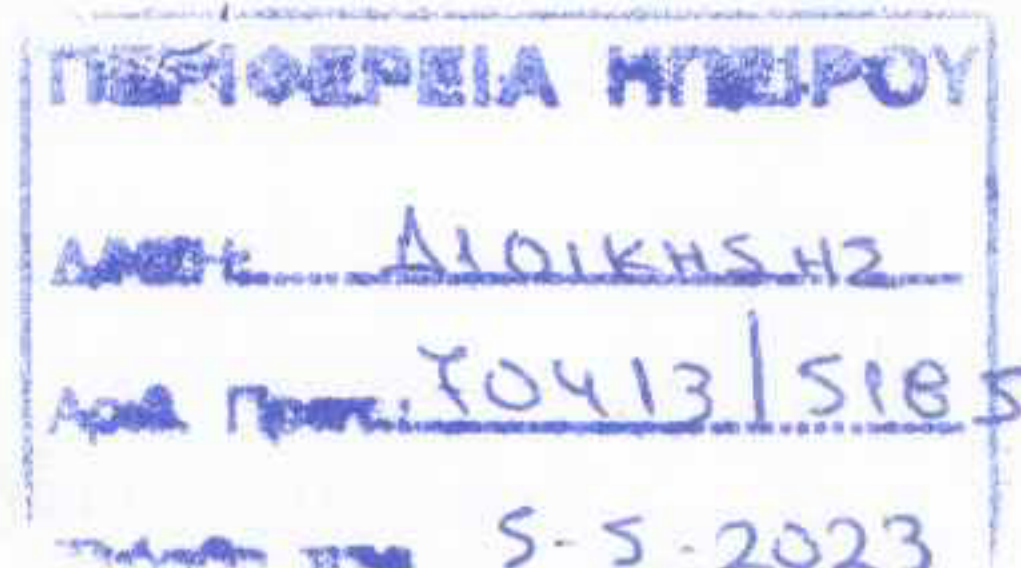 ΠΕΡΙΦΕΡΕΙΑ ΗΠΕΙΡΟΥ
ΔΙΟΙΚΗΣΗΣ
Αριθ. Πρωτ.: 70413/5185
5-5-2023